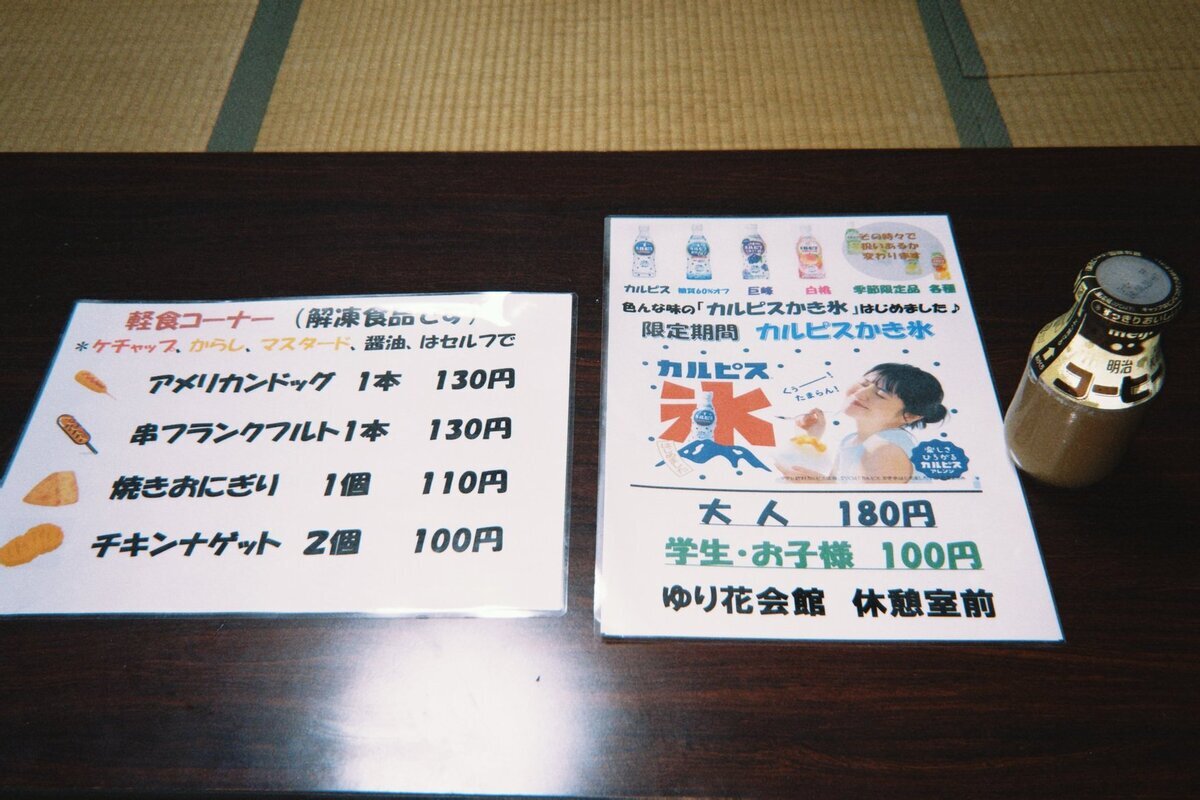 軽食コーナー（解凍食品です）
*ケチャップ、からし、マスタード、醤油、はセルフで
アメリカンドッグ 1本 130円
串フランクフルト1本 130円
焼きおにぎり 1個 110円
チキンナゲット 2個 100円
その時々で
扱いあるか
変わります
カルピス 糖質60%オフ 巨峰 白桃 季節限定品 各種
色んな味の「カルピスかき氷」はじめました♪
限定期間 カルピスかき氷
カルピス
氷
くぅーー!
たまらん!
楽しさ
ひろがる
カルピス
アレンジ
大人 180円
学生・お子様 100円
ゆり花会館 休憩室前
meiji
明治
コーヒー